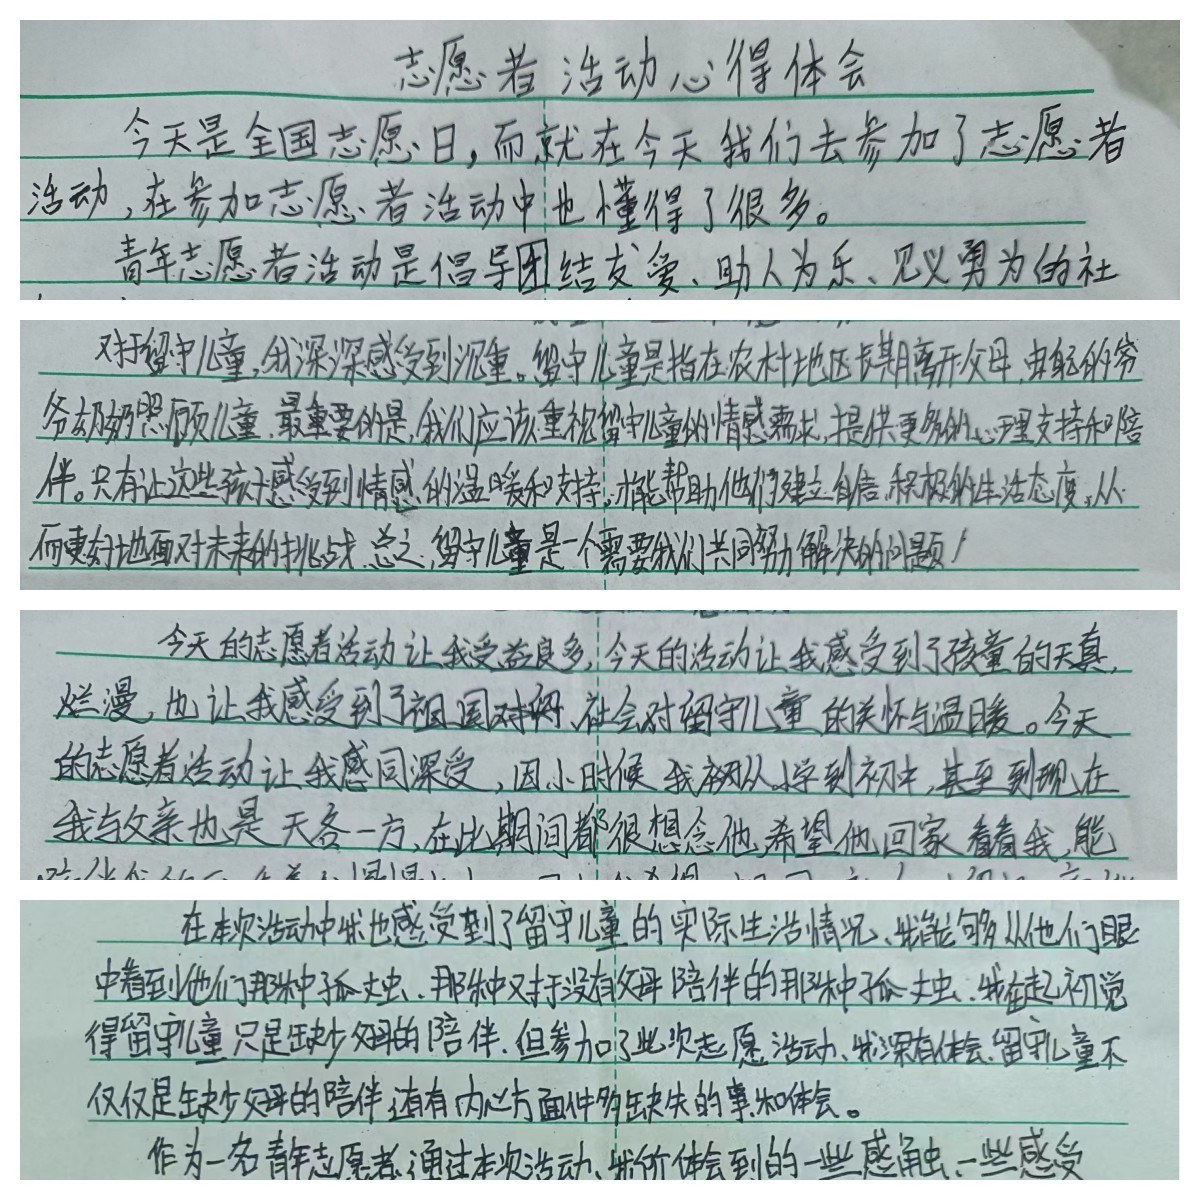 志愿者活动心得体会
今天是全国志愿日,而就在今天我们去参加了志愿者
活动,在参加志愿者活动中也懂得了很多。
青年志愿者活动是倡导团结友爱、助人为乐、见义勇为的社
对于留守儿童,我深深感受到沉重。留守儿童是指在农村地区长期离开父母,由年的爷
爷奶奶照顾儿童,最重要的是,我们应该重视留守儿童的情感需求,提供更多的心理支持和陪
伴。只有让这些孩子感受到情感的温暖和支持,才能帮助他们建立自信,积极的生活态度,从
而更好地面对未来的挑战,总之,留守儿童是一个需要我们共同努力解决的问题!
今天的志愿者活动让我受益良多,今天的活动让我感受到了孩童的天真
烂漫,也让我感受到了祖国对、社会对留守儿童的关怀与温暖。今天
的志愿者活动让我感同深受,因小时候我从小学到初中,甚至到现在
我与父亲也是天各一方,在此期间都很想念他,希望他回家看看我,能
在本次活动中我也感受到了留守儿童的实际生活情况、我能够从他们眼
中看到他们那种孤独、那种对于没有父母陪伴的那种孤独、我在起初觉
得留守儿童只是缺少父母的陪伴,但参加了此次志愿活动、我深有体会、留守儿童不
仅仅是缺少父母的陪伴,还有内心方面许多缺失的事和体会。
作为一名青年志愿者,通过本次活动、我们体会到的一些感触、一些感受